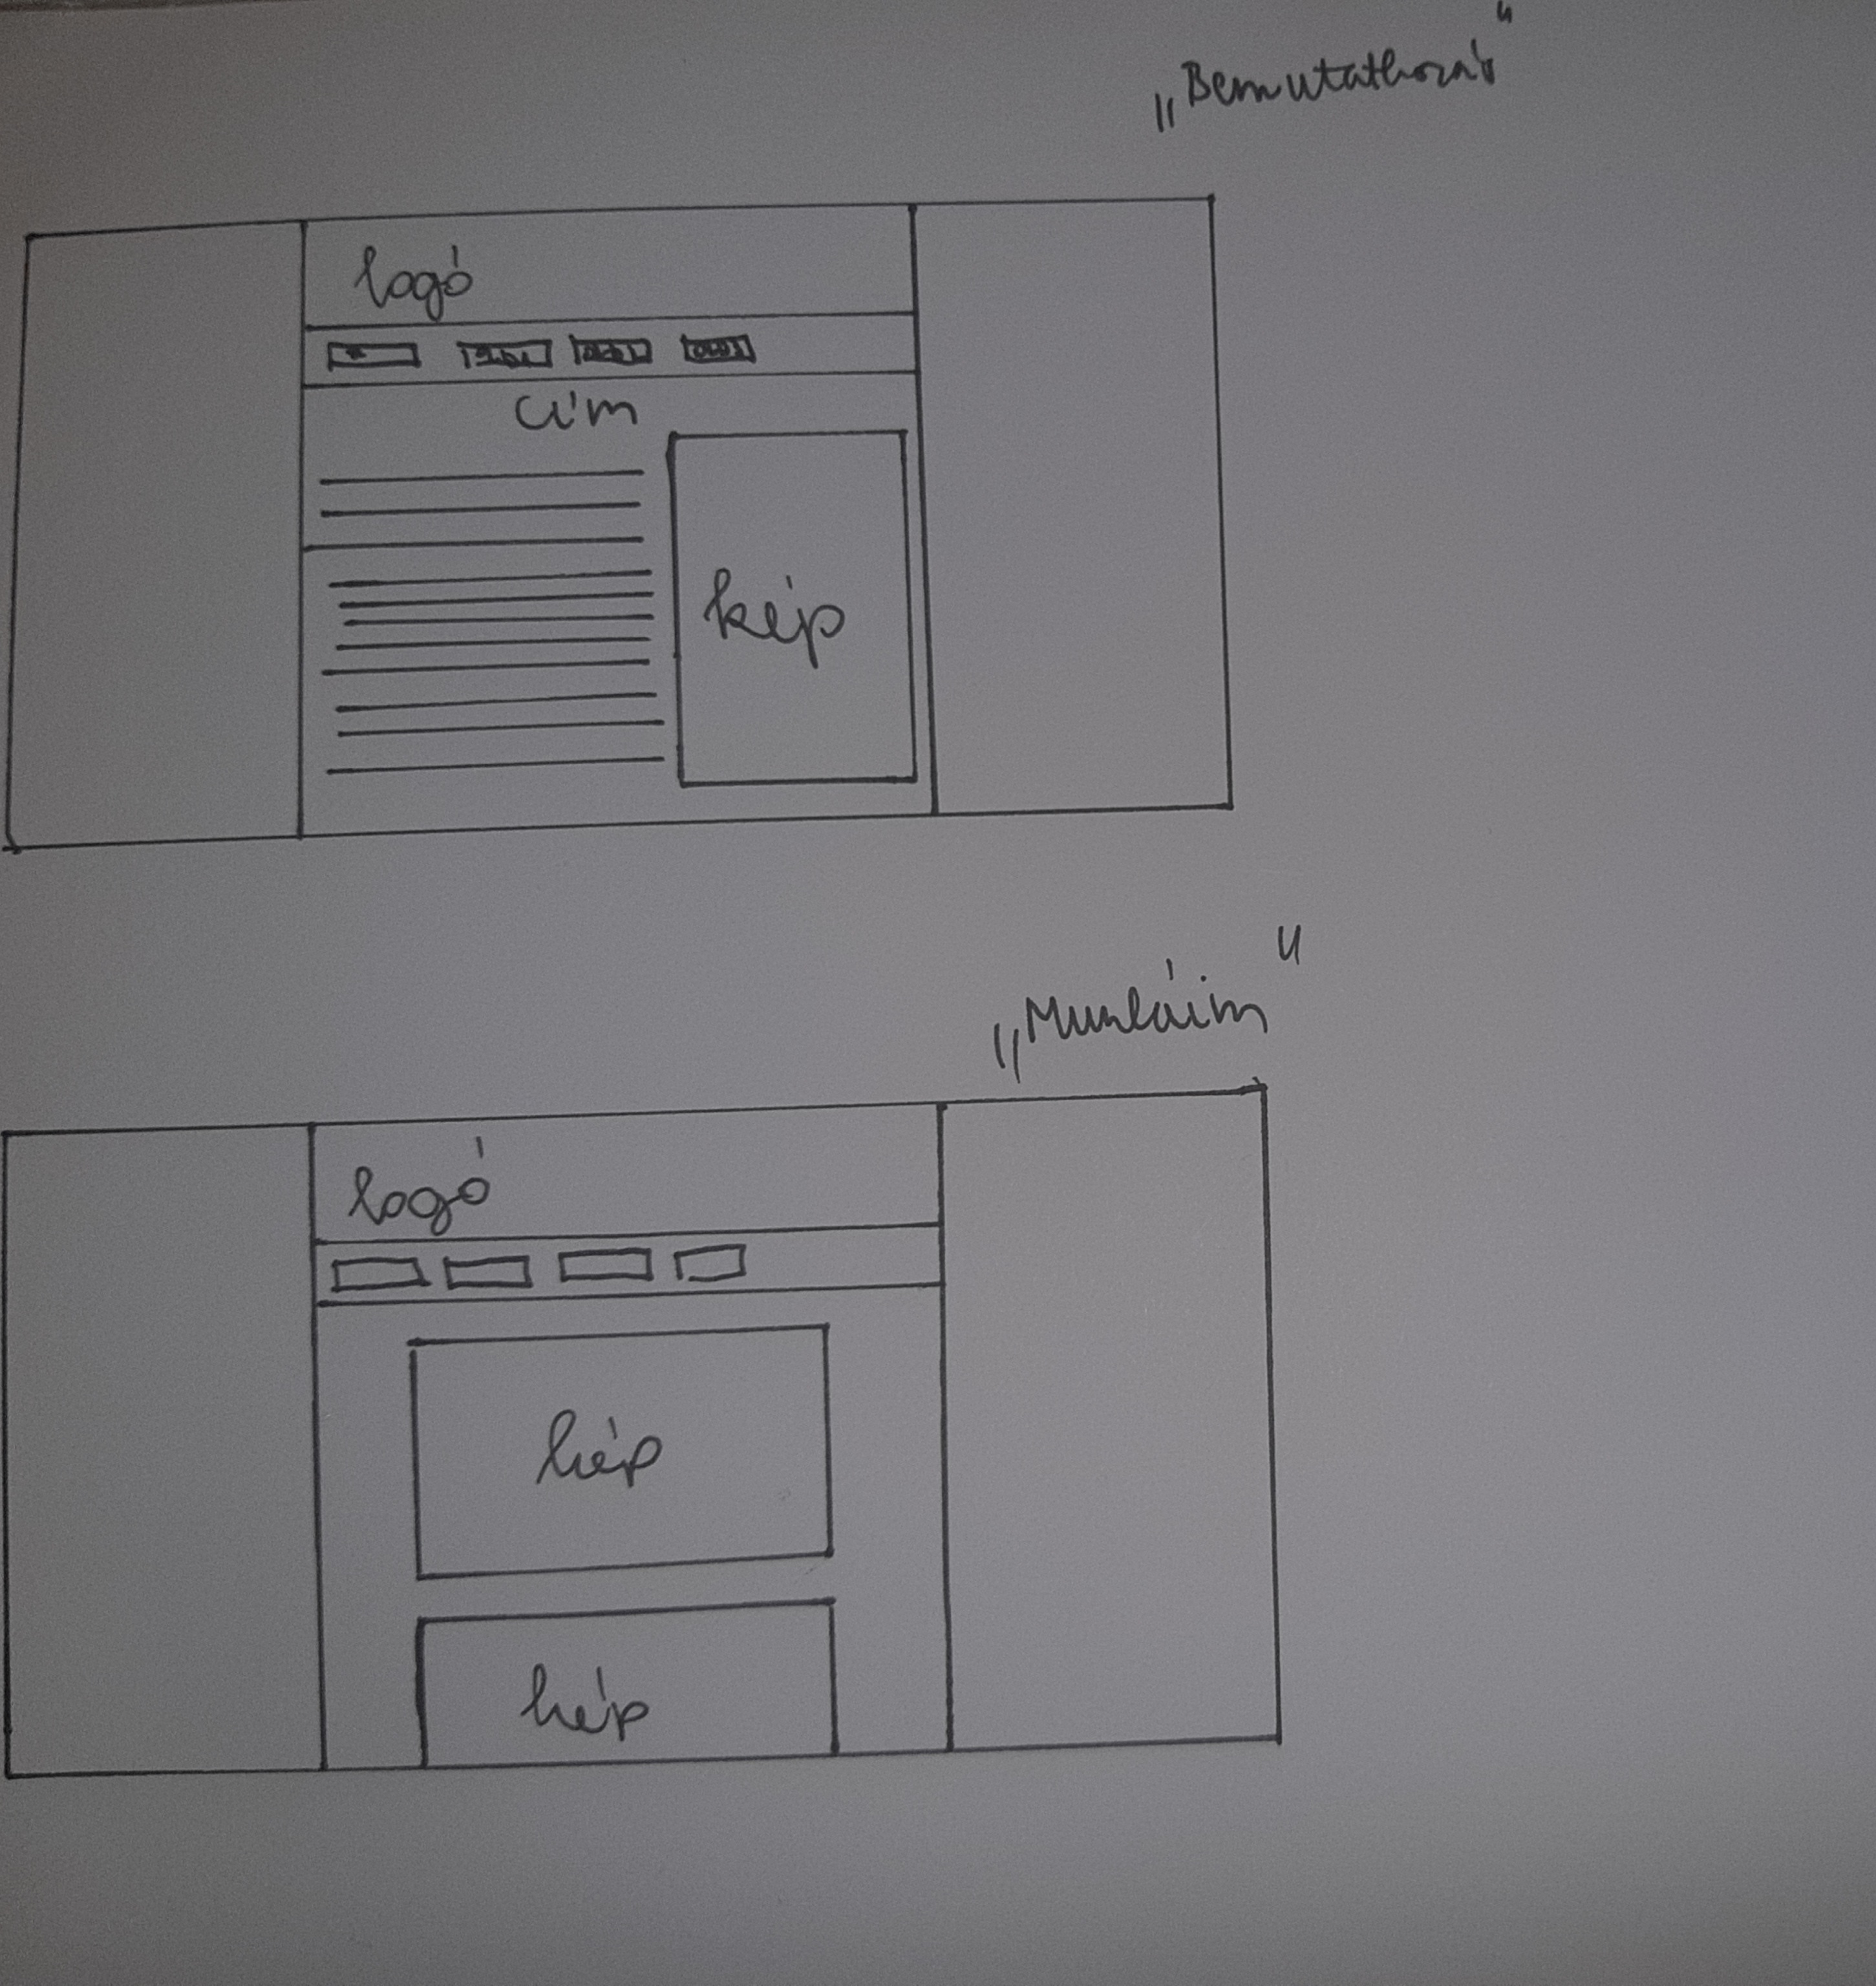 „Bemutatkozás"
logó
cím
kép
„Munkáim"
logó
kép
kép